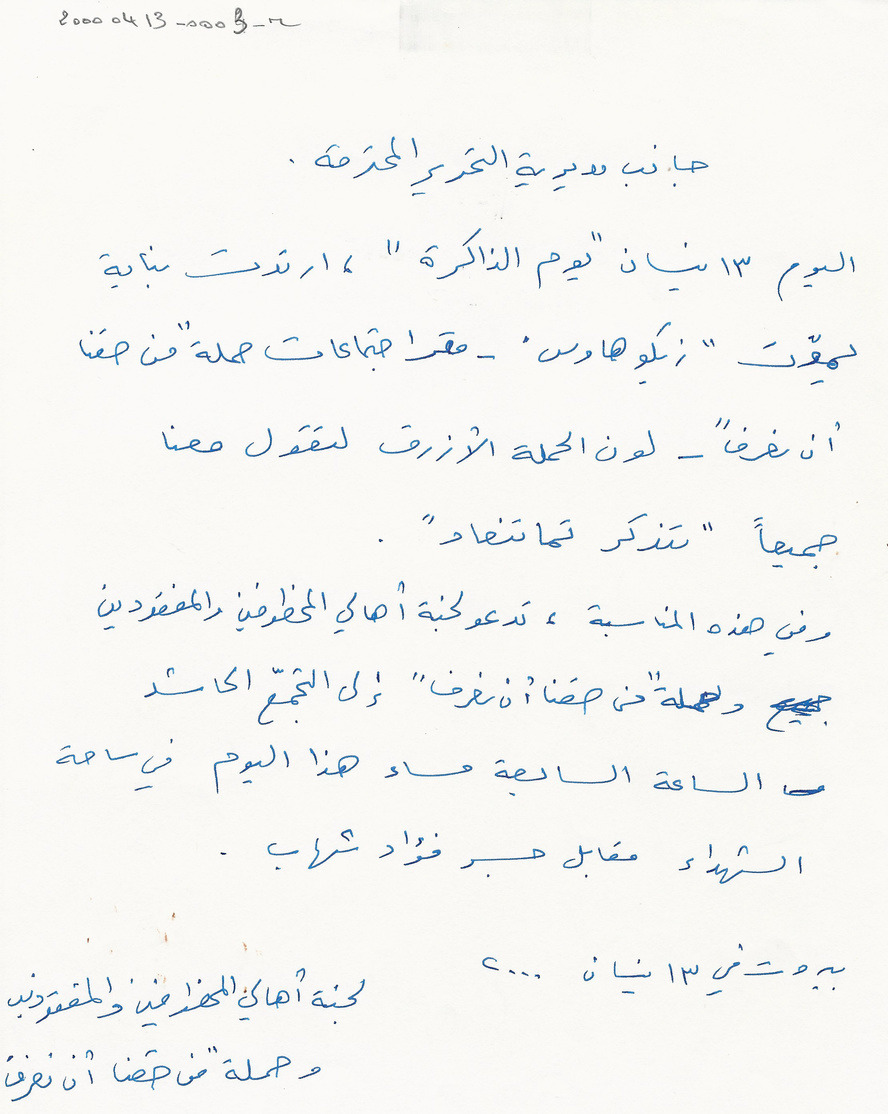 20000413-0003-r
جانب مديرية التحرير المحترمة .
اليوم ١٣ نيسان "يوم الذاكرة" ، ارتدت بناية
"زيكو هاوس" - مقر اجتماعات حملة "من حقنا
أن نعرف" - لون الحملة الأزرق لنقول معنا
جميعاً "نتذكر تما تنعاد" .
وفي هذه المناسبة ، تدعو لجنة أهالي المخطوفين والمفقودين
وحملة "من حقنا أن نعرف" إلى التجمّع الحاشد
الساعة السابعة مساء هذا اليوم في ساحة
الشهداء مقابل جسر فؤاد شهاب .
بيروت في ١٣ نيسان ٢٠٠٠
لجنة أهالي المخطوفين والمفقودين
وحملة "من حقنا أن نعرف